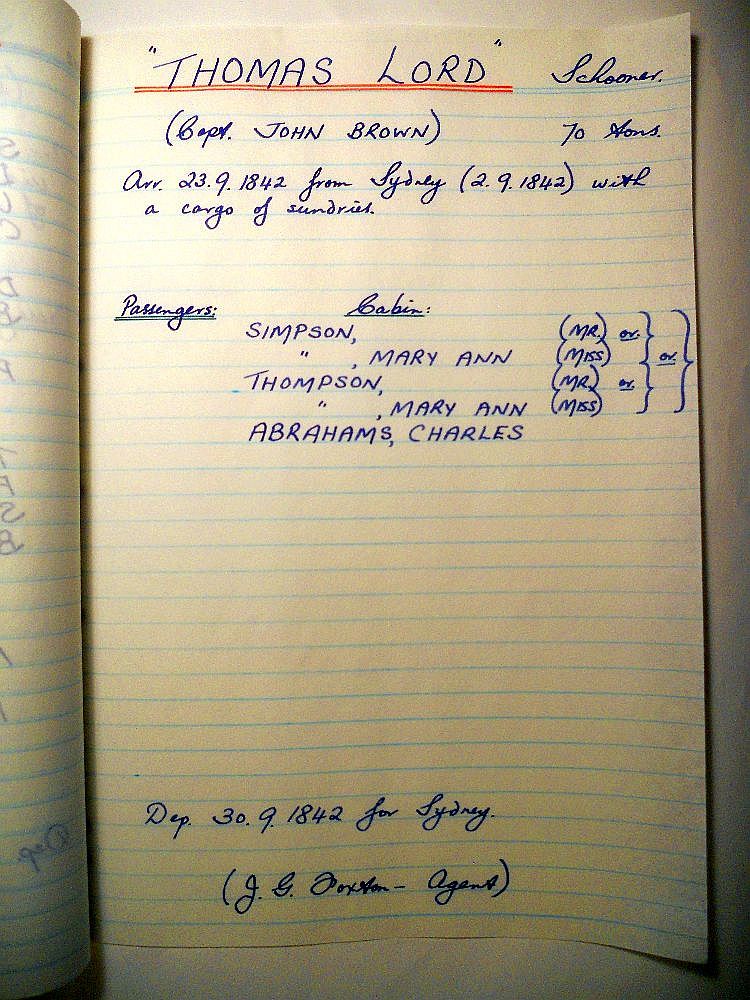 "THOMAS LORD" Schooner.
(Capt. JOHN BROWN) 70 tons.
Arr. 23.9.1842 from Sydney (2.9.1842) with
a cargo of sundries.
Passengers: Cabin:
SIMPSON, (MR.) or.
" , MARY ANN (MISS) or.
THOMPSON, (MR.) or.
" , MARY ANN (MISS)
ABRAHAMS, CHARLES
Dep. 30.9.1842 for Sydney.
(J. G. Foxton - Agent)